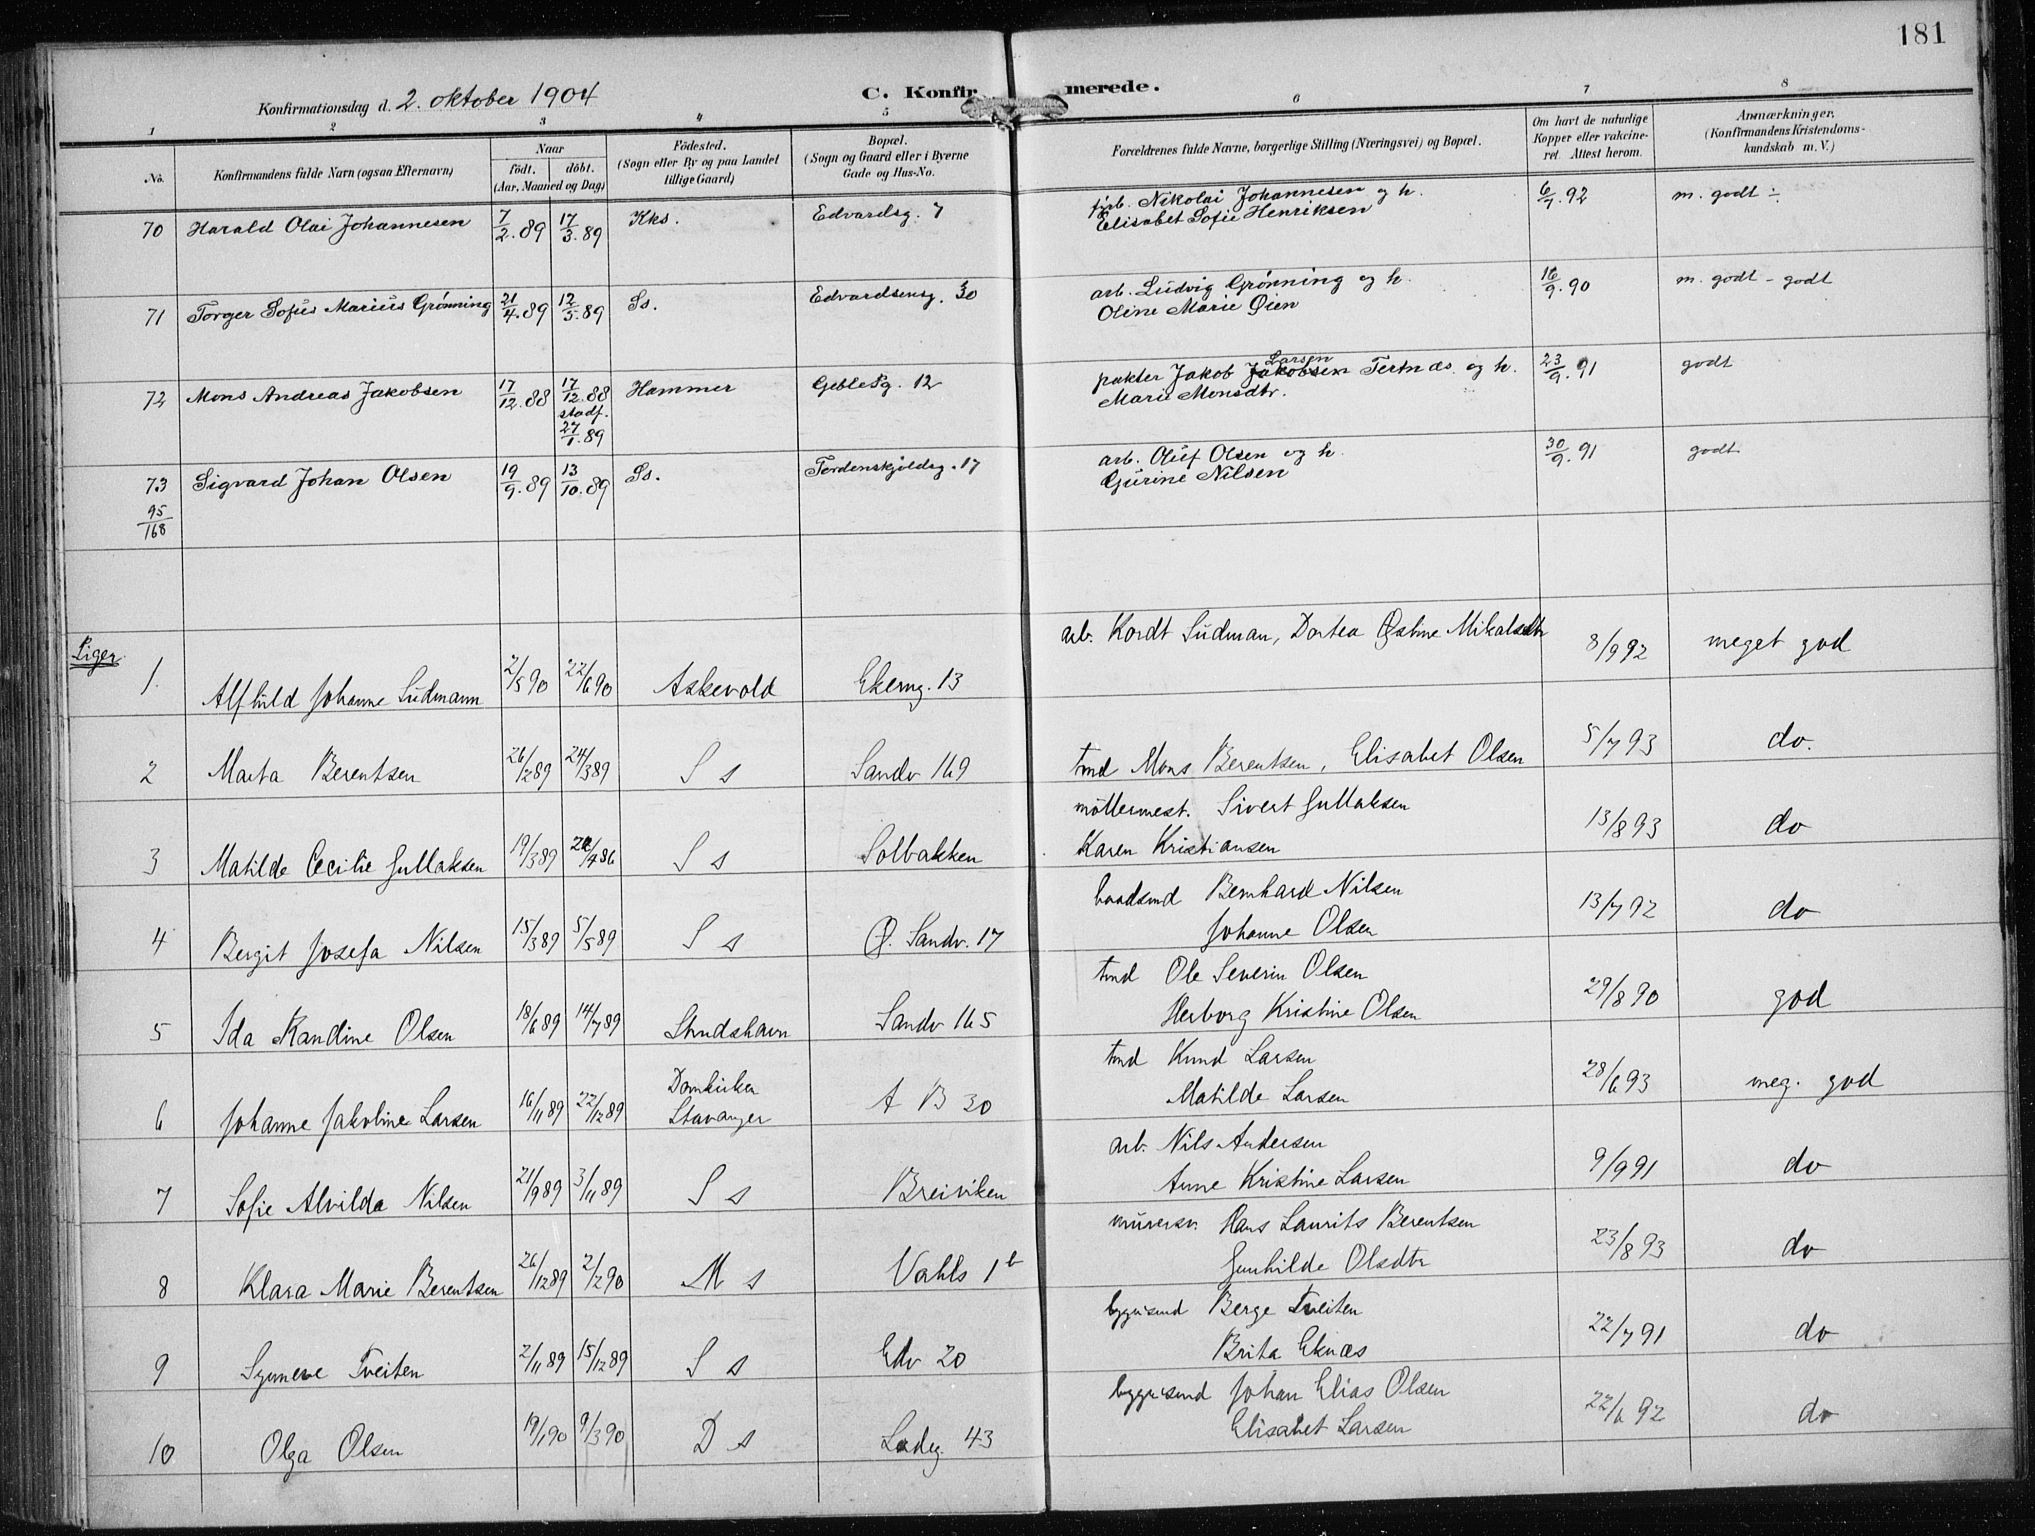 181
Konfirmationsdag d. 2. oktober 1904
C. Konfirmerede.
1 2 3 4 5 6 7 8
No. Konfirmandens fulde Navn (ogsaa Efternavn) Naar født. døbt. (Aar, Maaned og Dag) Fødested. (Sogn eller By og paa Landet tillige Gaard) Bopæl. (Sogn og Gaard eller i Byerne Gade og Hus-No. Forældrenes fulde Navne, borgerlige Stilling (Næringsvei) og Bopæl. Om havt de naturlige Kopper eller vakcineret. Attest herom. Anmærkninger. (Konfirmandens Kristendomskundskab m. V.)
70 Harald Olai Johannesen 7/2.89 17/3.89 Kks. Edvardsg. 7 Nikolai Johannesen og h. 6/7.92 m. godt ÷
Elisabet Sofie Henriksen
71 Torger Sofus Marius Grønning 21/4.89 12/5.89 Ss. Edvardseng. 30 arb. Ludvig Grønning og h. 16/9.90 m. godt - godt
Oline Marie Øien
72 Mons Andreas Jakobsen 17/12.88 17/12.88 stadf. 27/1.89 Hammer Geblesg. 12 pakter Jakob Jakobsen Larsen Tertnæs og h. 23/9.91 godt
Marie Monsdtr.
73 Sigvard Johan Olsen 19/9.89 13/10.89 Ss. Tordenskjoldsg. 17 arb. Oluf Olsen og h. 30/9.91 godt
Gurine Nilsen
95/168
Piger
1. Alfhild Johanne Sudmann 2/5 90 22/6 90 Askevold Ekerng. 13 arb. Kordt Sudman, Dortea Østine Mikalsdtr 8/9 92 meget god
2 Marta Berentsen 26/2 89 24/3 89 S s Sandv 169 tmd Mons Berentsen, Elisabet Olsen 5/7 93 do.
3 Matilde Cecilie Gullaksen 19/3 89 /4 86 S s Solbakken møllermest. Sivert Gullaksen 13/8 93 do
Karen Kristiansen
4 Bergit Josefa Nilsen 15/3 89 5/5 89 S s Ø. Sandv. 17 baadsmd Bernhard Nilsen 13/7 92 do
Johanne Olsen
5 Ida Randine Olsen 18/6 89 14/7 89 Strudshavn Sandv 165 tmd Ole Severin Olsen 29/8 90 god
Herborg Kristine Olsen
6 Johanne Jakobine Larsen 16/11 89 22/12 89 Domkirken Stavanger A B 30 tmd Knud Larsen 28/6 93 meg. god
Matilde Larsen
7 Sofie Alvilda Nilsen 21/9 89 3/11 89 S s Breiviken arb. Nils Andersen 9/9 91 do
Anne Kristine Larsen
8 Klara Marie Berentsen 26/12 89 2/2 90 M s Vahls 1 b murersv. Hans Laurits Berentsen 23/8 93 do
Gunhilde Olsdtr
9 Synneve Tveiten 2/11 89 15/12 89 S s Edv 20 bygn.smd Berge Tveiten 22/7 91 do
Brita Eknæs
10 Olga Olsen 19/1 90 9/3 90 D s Ladeg. 43 bygn.smd Johan Elias Olsen 22/6 92 do
Elisabet Larsen